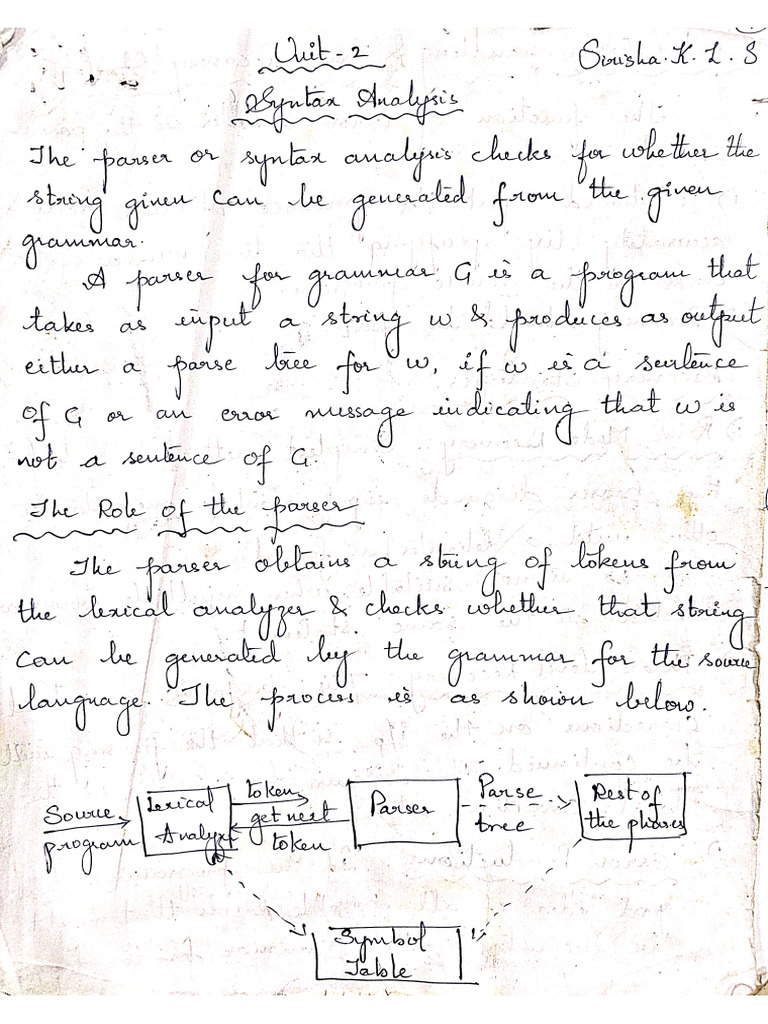 Unit - 2
Sirisha. K. L. S
Syntax Analysis
The parser or syntax analysis checks for whether the
string given can be generated from the given
grammar.
A parser for grammar G is a program that
takes as input a string w & produces as output
either a parse tree for w, if w is a sentence
of G or an error message indicating that w is
not a sentence of G.
The Role of the parser
The parser obtains a string of tokens from
the lexical analyzer & checks whether that string
can be generated by the grammar for the source
language. The process is as shown below.
Source
program
Lexical
Analyzer
token
get next
token
Parser
Parse
tree
Rest of
the phases
Symbol
Table